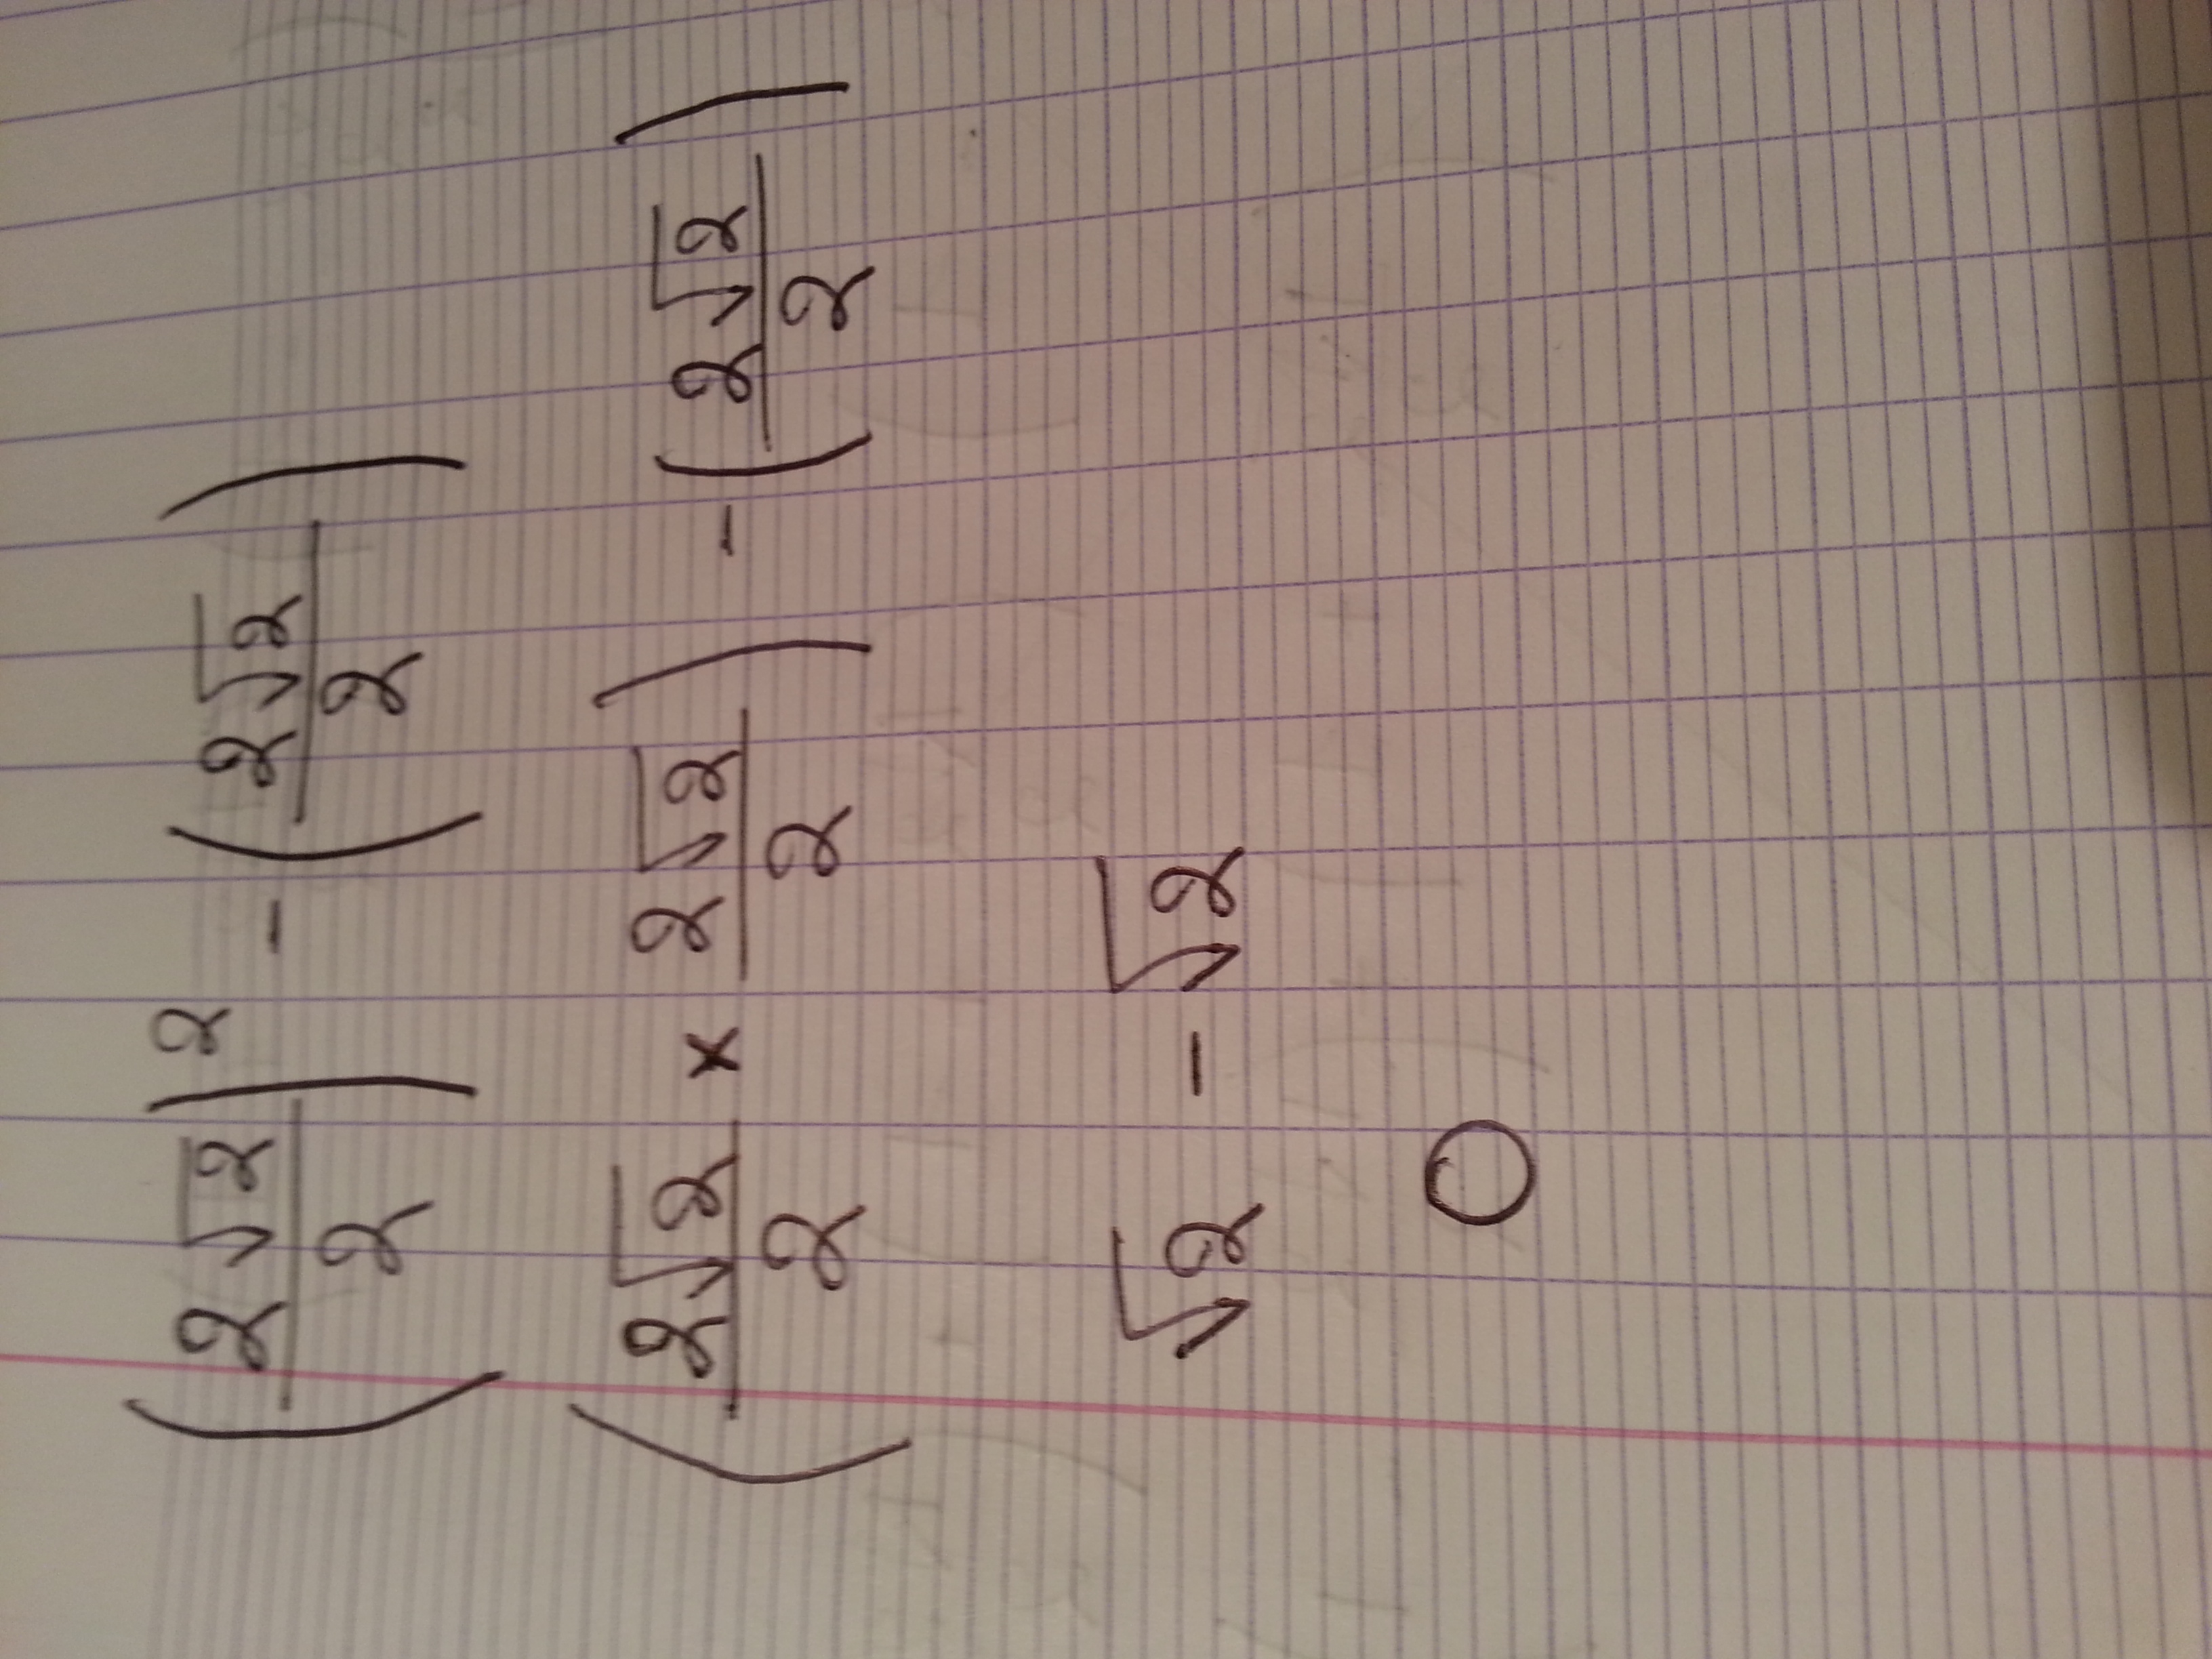 (2√2/2)² - (2√2/2)
(2√2/2 × 2√2/2) - (2√2/2)
√2 - √2
0